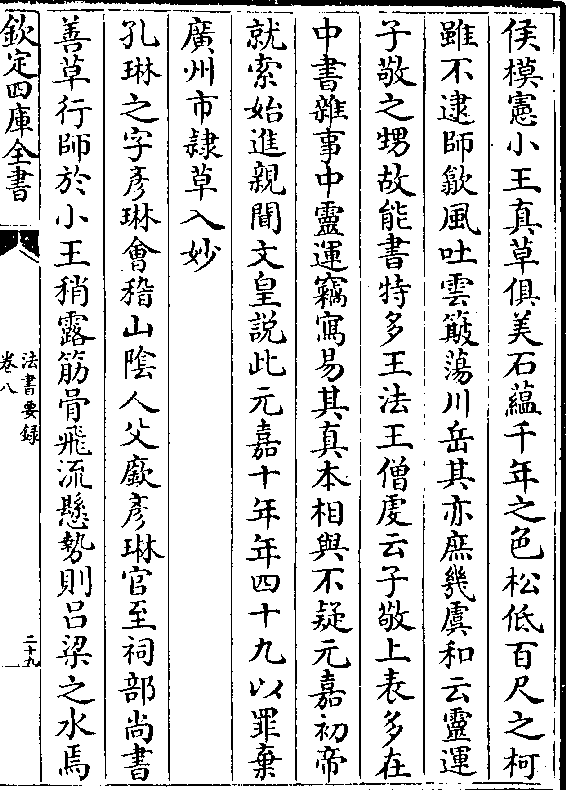 侯模憲小王真草俱美石藴千年之色松低百尺之柯
雖不逮師歙風吐雲簸蕩川岳其亦庶幾虞和云靈運
子敬之甥故能書特多王法王僧虔云子敬上表多在
中書雜事中靈運竊寫易其真本相與不疑元嘉初帝
就索始進親聞文皇説此元嘉十年年四十九以罪棄
廣州市隸草入妙
孔琳之字彦琳會稽山陰人父廞彦琳官至祠部尚書
善草行師於小王稍露筋骨飛流懸勢則吕梁之水焉
欽定四庫全書
法書要録
卷八
二十九